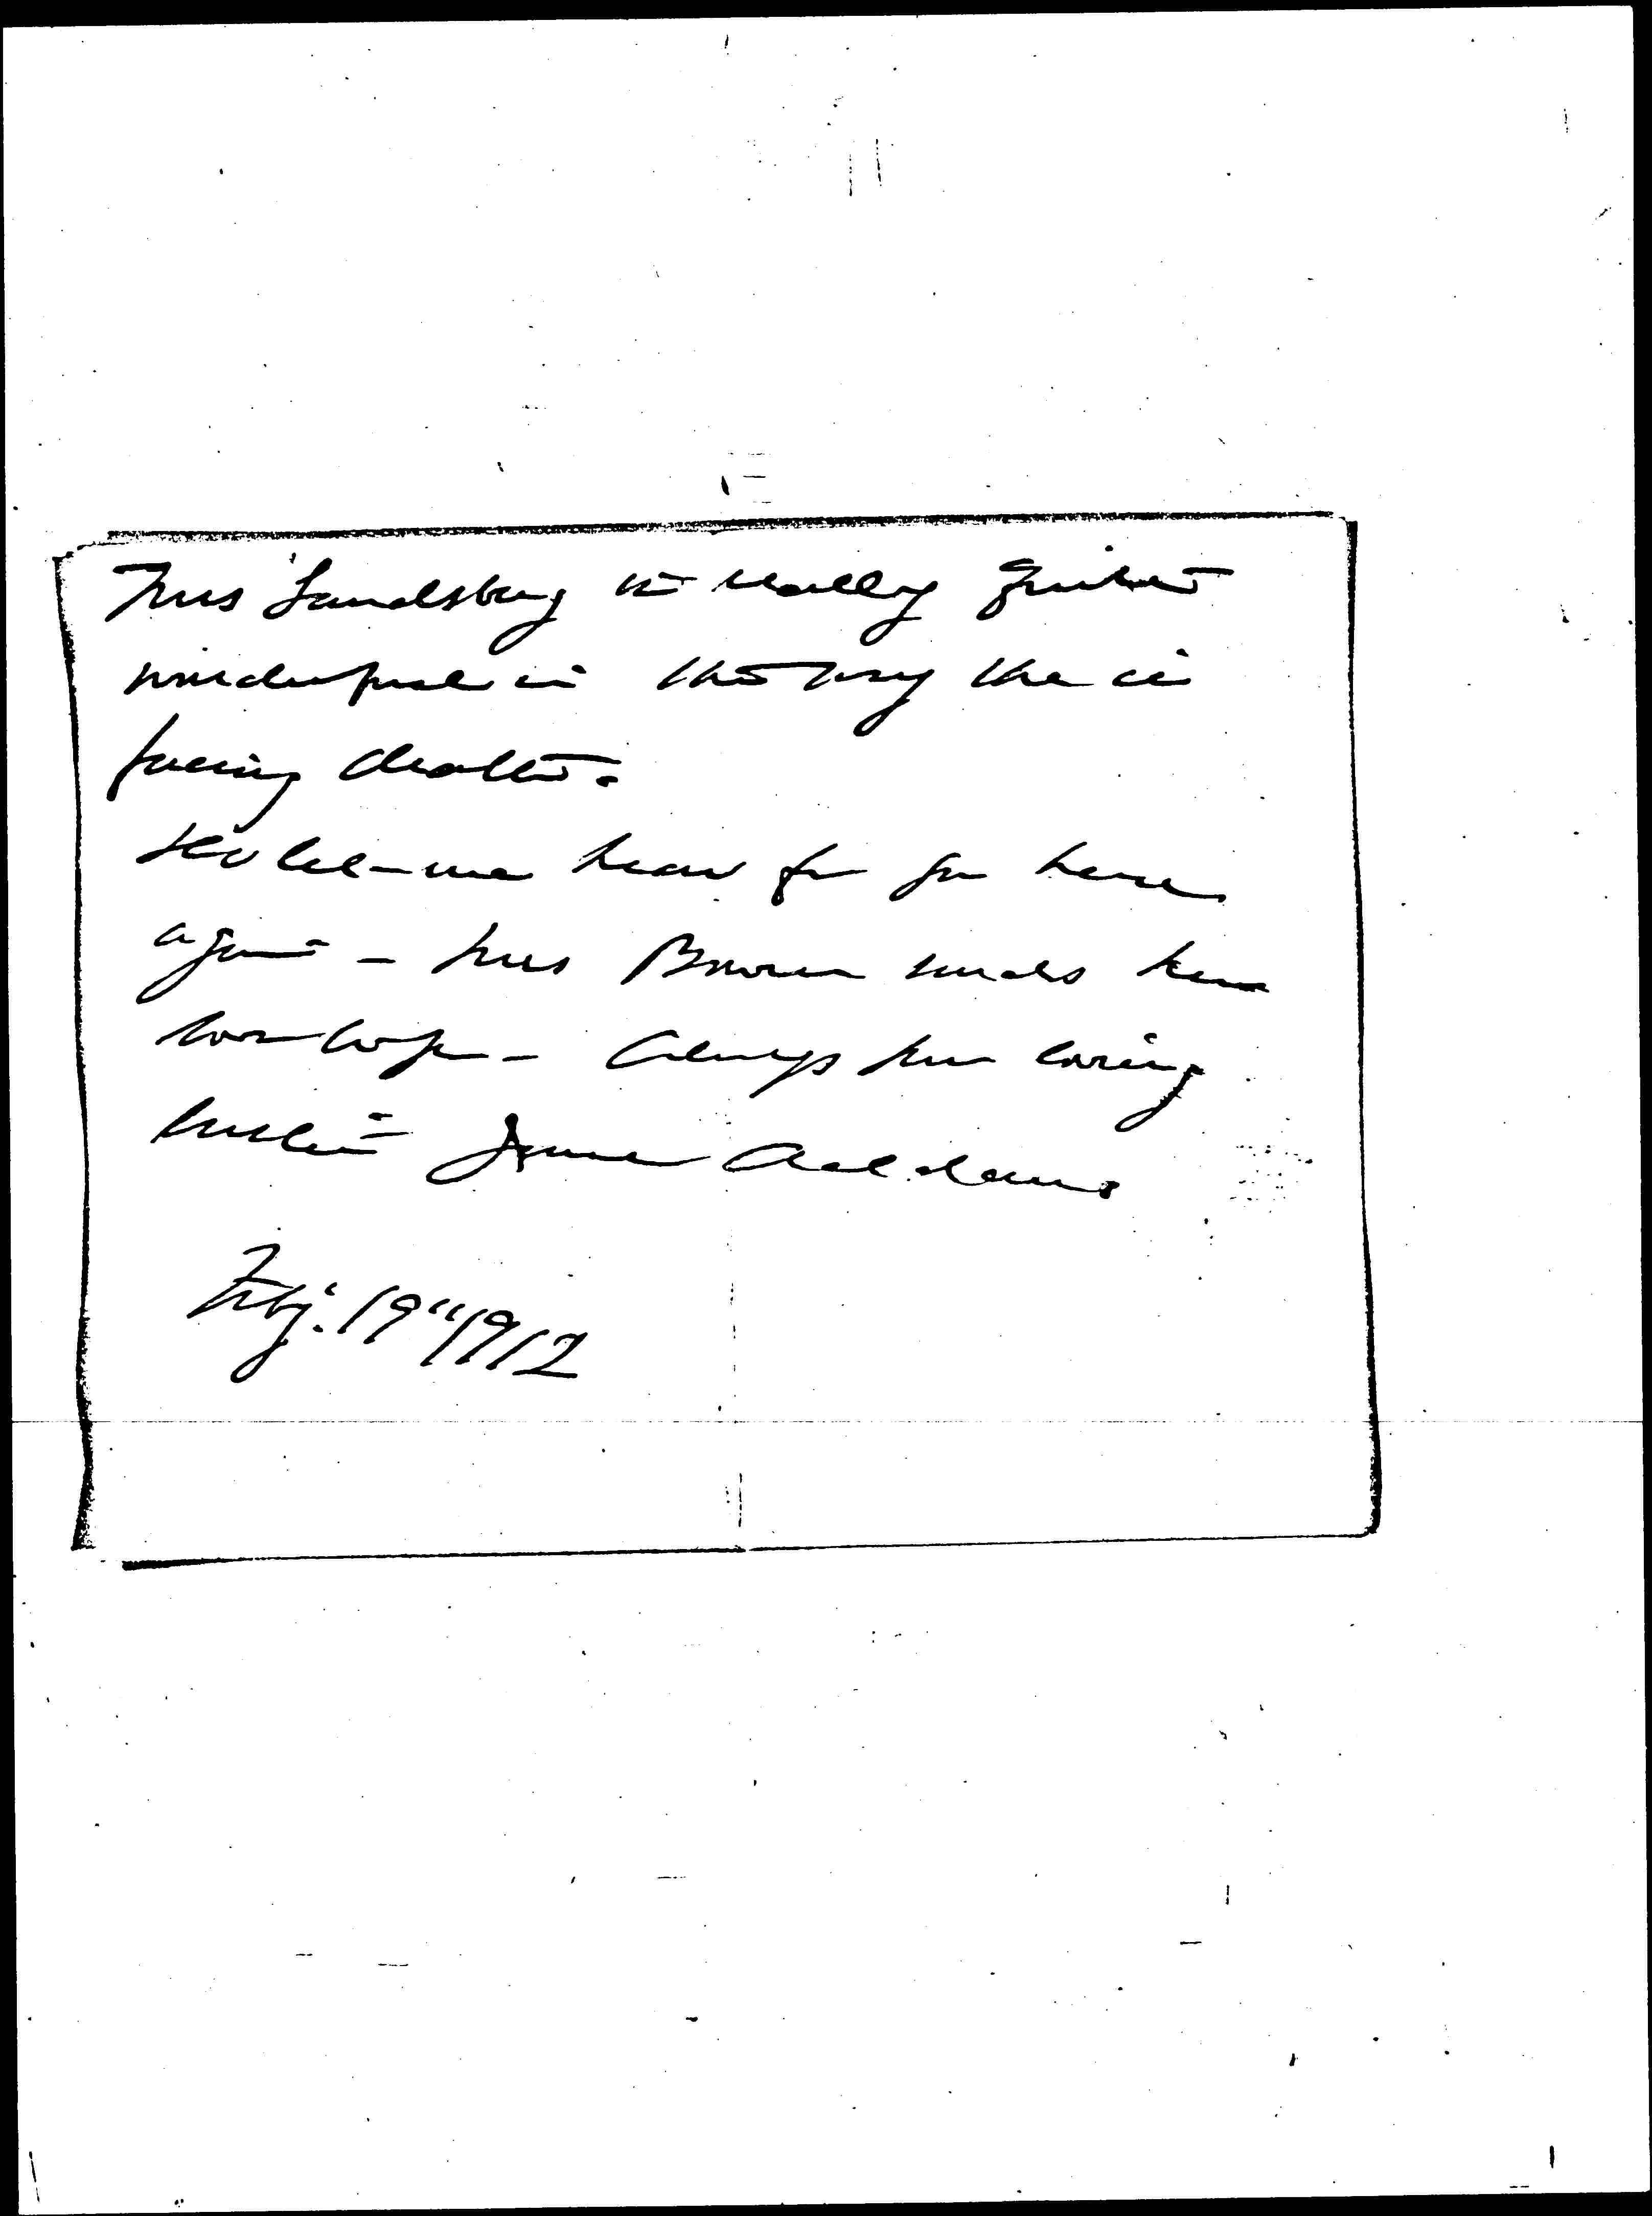 Mrs Landsberg is really quite
wonderful in the way she is
facing death.
Do let me hear from you here
again – Mrs Bowen sends her
love – Always your loving
Jane Addams
Feby. 19" 1912